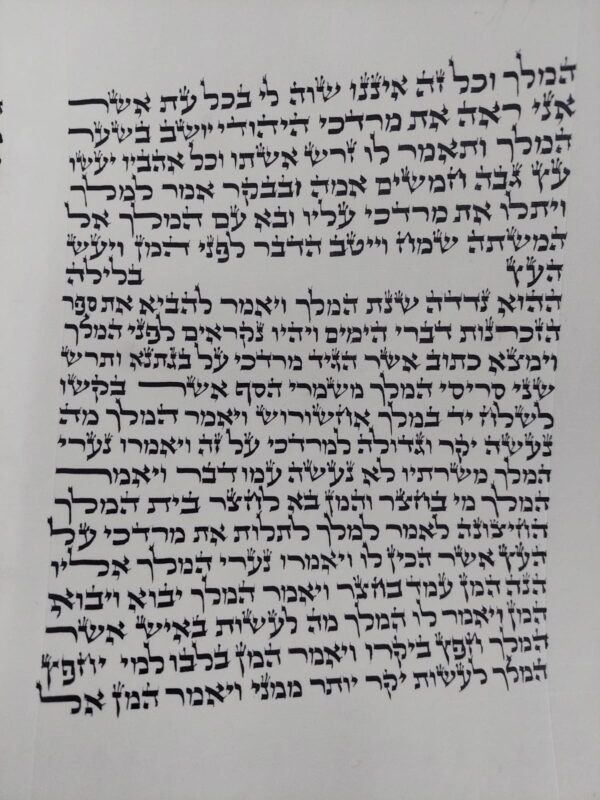 המלך וכל זה איננו שוה לי בכל עת אשר
אני ראה את מרדכי היהודי יושב בשער
המלך ותאמר לו זרש אשתו וכל אהביו יעשו
עץ גבה חמשים אמה ובבקר אמר למלך
ויתלו את מרדכי עליו ובא עם המלך אל
המשתה שמח וייטב הדבר לפני המן ויעש
העץ בלילה
ההוא נדדה שנת המלך ויאמר להביא את ספר
הזכרנות דברי הימים ויהיו נקראים לפני המלך
וימצא כתוב אשר הגיד מרדכי על בגתנא ותרש
שני סריסי המלך משמרי הסף אשר בקשו
לשלח יד במלך אחשורוש ויאמר המלך מה
נעשה יקר וגדולה למרדכי על זה ויאמרו נערי
המלך משרתיו לא נעשה עמו דבר ויאמר
המלך מי בחצר והמן בא לחצר בית המלך
החיצונה לאמר למלך לתלות את מרדכי על
העץ אשר הכין לו ויאמרו נערי המלך אליו
הנה המן עמד בחצר ויאמר המלך יבוא ויבוא
המן ויאמר לו המלך מה לעשות באיש אשר
המלך חפץ ביקרו ויאמר המן בלבו למי יחפץ
המלך לעשות יקר יותר ממני ויאמר המן אל